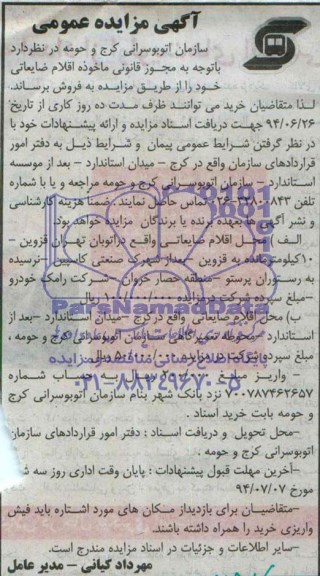 آگهی مزایده عمومی
سازمان اتوبوسرانی کرج و حومه در نظردارد
باتوجه به مجوز قانونی ماخوذه اقلام ضایعاتی
خود را از طریق مزایده به فروش برساند.
لـذا متقاضیان خرید می توانند ظرف مدت ده روز کاری از تاریخ
۹۴/۰۶/۲۶ جهت دریافت اسناد مزایده و ارائه پیشنهادات خود با
در نظر گرفتن شرایط عمومی پیمان و شرایط ذیـل به دفتر امور
قراردادهای سازمان واقع در کرج – میدان استاندارد – بعد از موسسه
استاندارد – سازمان اتوبوسرانی کرج و حومه مراجعه و یا با شماره
تلفن تماس حاصل نمایند. ضمنا هزینه کارشناسی
و نشر آگهی به عهده برنده یا برندگان مزایده خواهد بود.
الف) محل اقلام ضایعاتی واقع در اتوبان تهران قزوین –
۱۰کیلومتر مانده به قزوین – بعداز شهرک صنعتی کاسپین – نرسیده
به رستوران پرستو – منطقه حصار خروان – شرکت رامک خودرو
–مبلغ سپرده شرکت در مزایده ریال
ب) محل اقلام ضایعاتی واقع در کرج –میدان استاندارد –بعد از
استاندارد – محوطه تعمیرگاهی سازمان اتوبوسرانی کرج و حومه ،
مبلغ سپرده شرکت در مزایده ریال
– واریـز مبلـغ ریـال بـه حسـاب شمـاره
۷۰۰۷۸۷۴۶۲۶۵۷ نزد بانک شهر بنام سازمان اتوبوسرانی کرج
و حومه بابت خرید اسناد .
–محل تحویل و دریافت اسناد : دفتر امور قراردادهای سازمان
اتوبوسرانی کرج و حومه .
–آخرین مهلت قبول پیشنهادات : پایان وقت اداری روز سه
مورخ ۹۴/۰۷/۰۷
–متقاضیـان برای بازدیداز مـکان های مورد اشـتاره باید فیش
واریزی خرید را همراه داشته باشند.
–سایر اطلاعات و جزئیات در اسناد مزایده مندرج است.
مهرداد کیانی – مدیر عامل
ParsNamadData
پایگاه اطلاع رسانی مناقصه و مزایده
۰۲۱-۸۸۳۴۹۶۷۰-۵